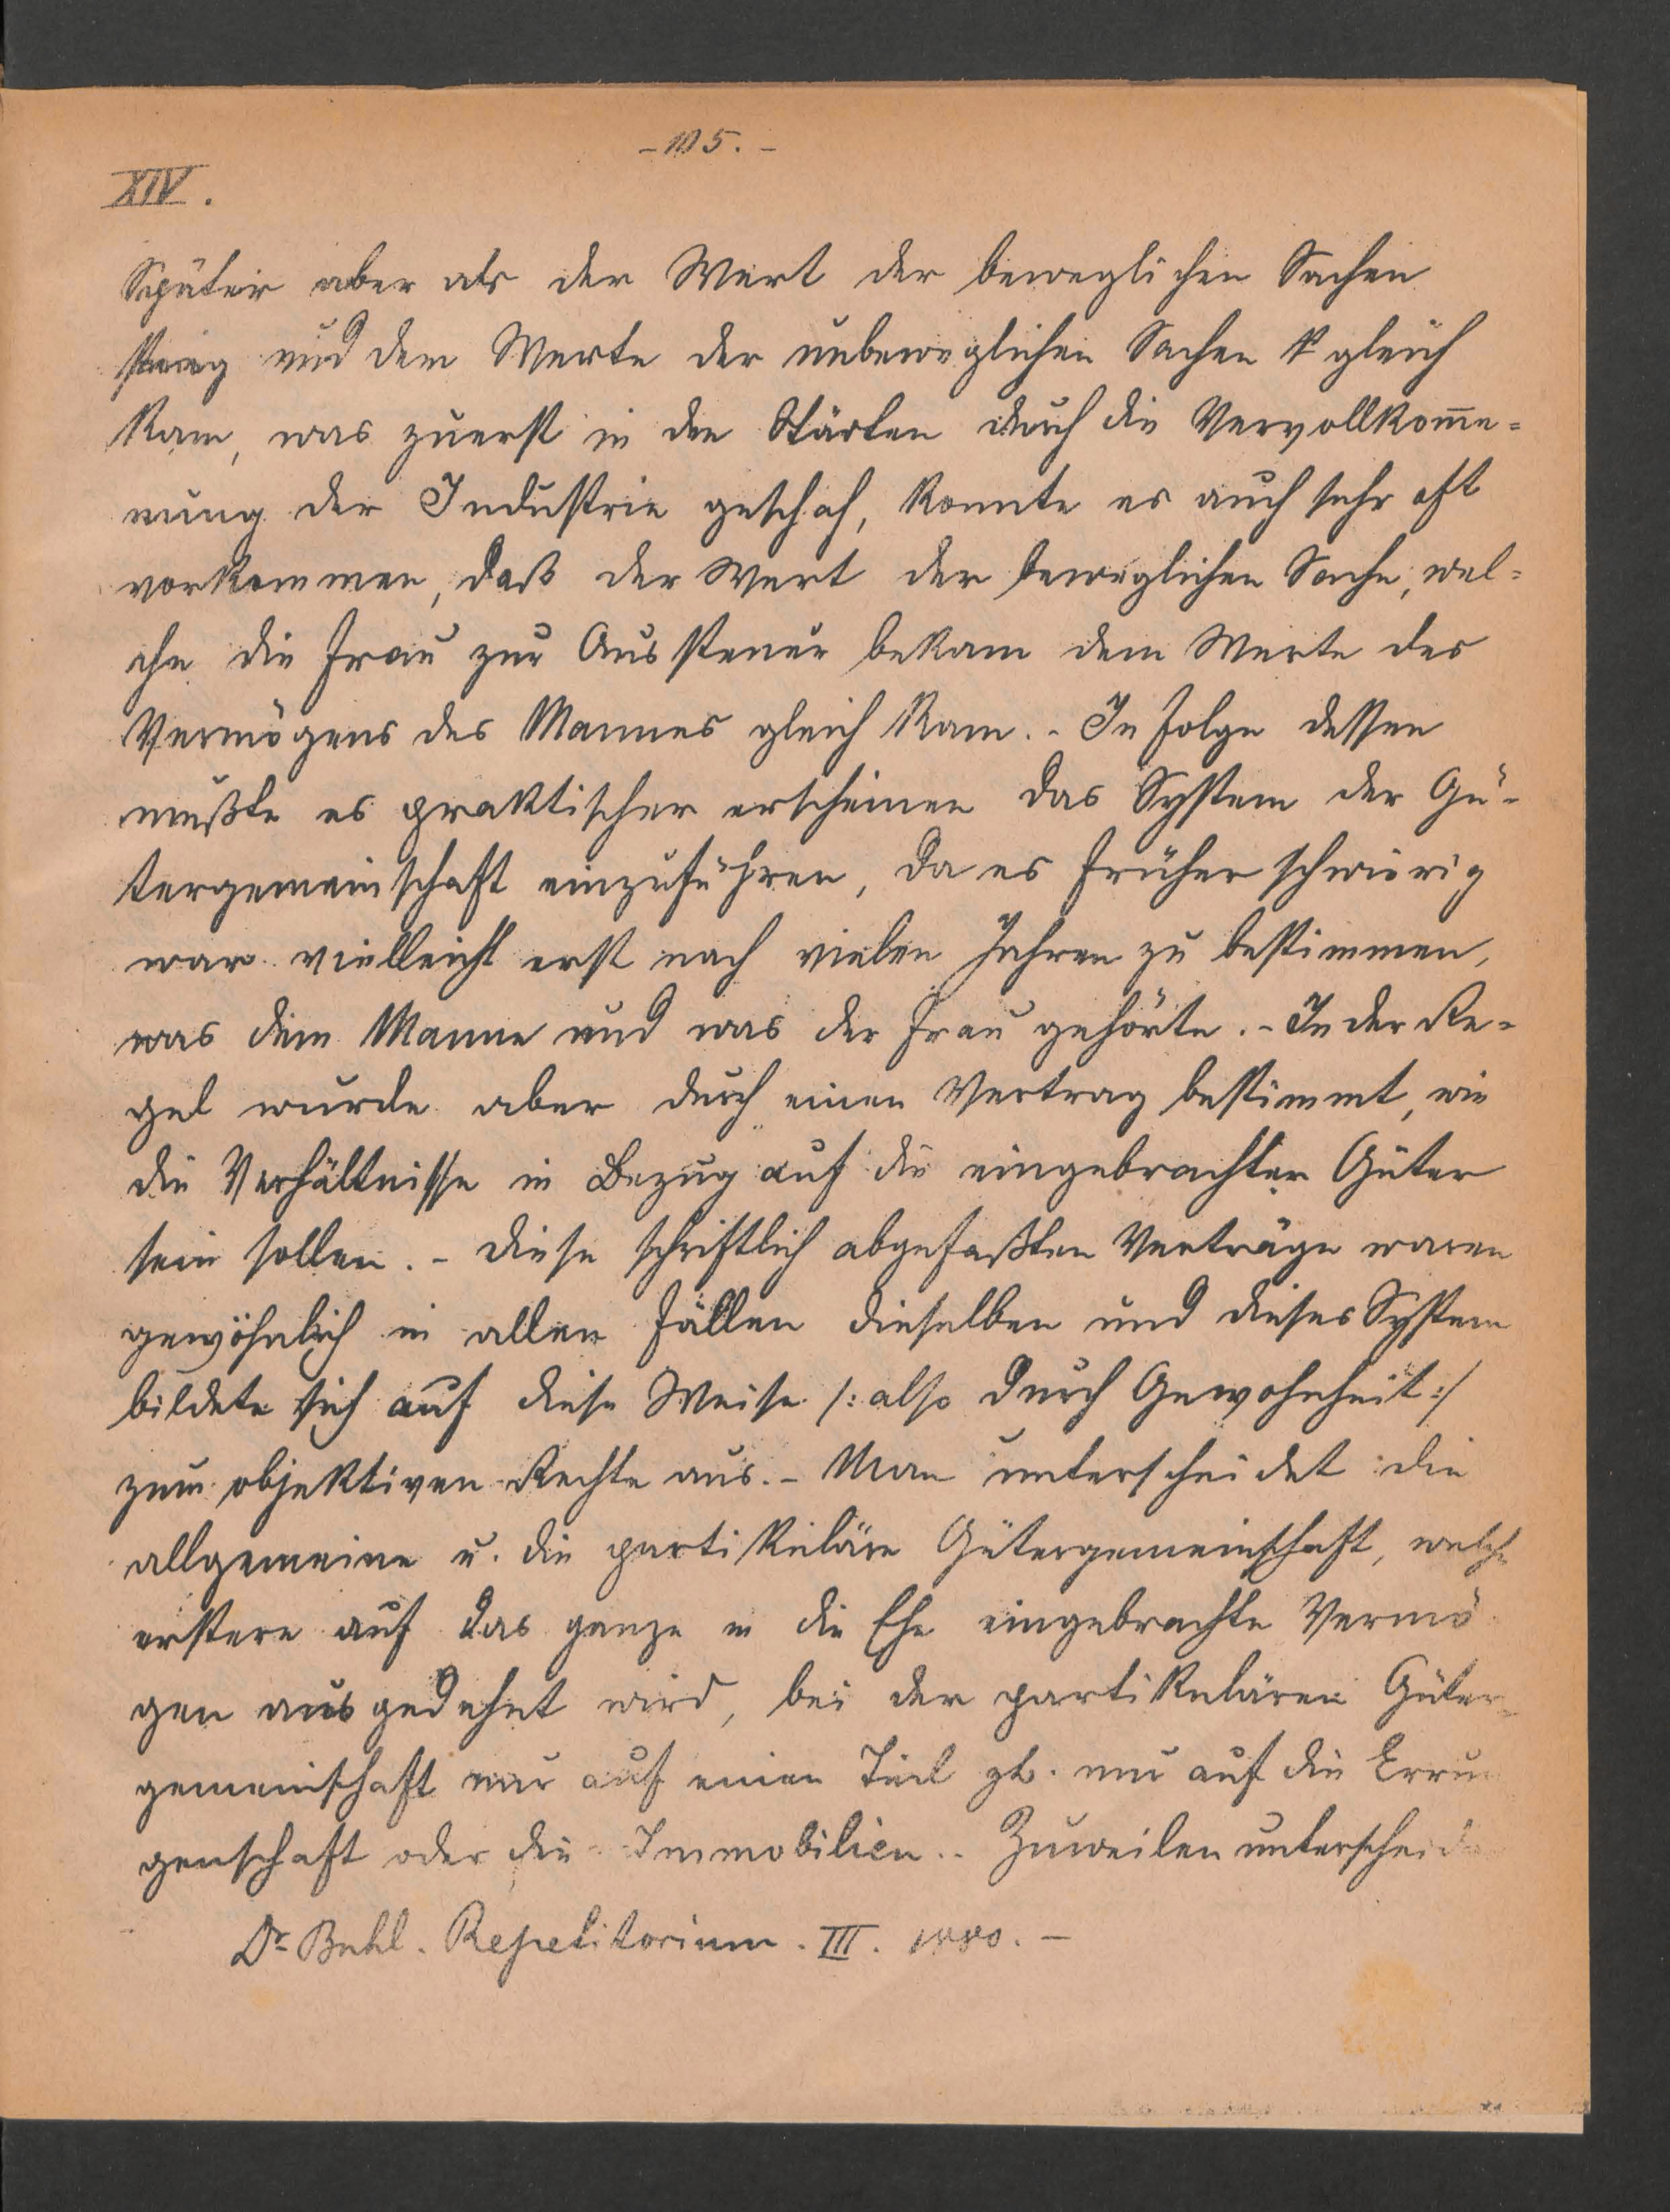 - 105. -
XIV.
Später aber als der Wert der beweglichen Sachen
stieg und dem Werte der unbeweglichen Sachen gleich
kam, was zuerst in den Städten durch die Vervollkom̄e=
nung der Industrie geschah, konnte es auch sehr oft
vorkommen, daß der Wert der beweglichen Sache, wel=
che die Frau zur Aussteuer bekam dem Werte des
Vermögens des Mannes gleich kam. - In Folge dessen
mußte es praktischer erscheinen das System der Gü-
tergemeinschaft einzuführen, da es früher schwierig
war vielleicht erst nach vielen Jahren zu bestimmen,
was dem Manne und was der Frau gehörte. - In der Re=
gel wurde aber durch einen Vertrag bestimmt, wie
die Verhältnisse in Bezug auf die eingebrachten Güter
sein sollen. - Diese schriftlich abgefaßten Verträge waren
gewöhnlich in allen Fällen dieselben und dieses System
bildete sich auf diese Weise /: also durch Gewohnheit :/
zum objektiven Rechte aus. - Man unterscheidet die
allgemeine u. die partikuläre Gütergemeinschaft, welche
erstere auf das ganze in die Ehe eingebrachte Vermö
gen ausgedehnt wird, bei der partikulären Güter=
gemeinschaft nur auf einen Teil zb. nur auf die Errun
genschaft oder die Immobilien. - Zuweilen unterscheid
Dr Buhl. Repetitorium. III. 1880. -